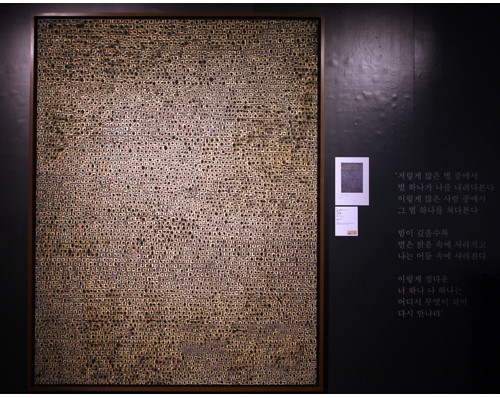 '저렇게 많은 별 중에서
별 하나가 나를 내려다본다
이렇게 많은 사람 중에서
그 별 하나를 쳐다본다
밤이 깊을수록
별은 밝음 속에 사라지고
나는 어둠 속에 사라진다
이렇게 정다운
너 하나 나 하나는
어디서 무엇이 되어
다시 만나랴'